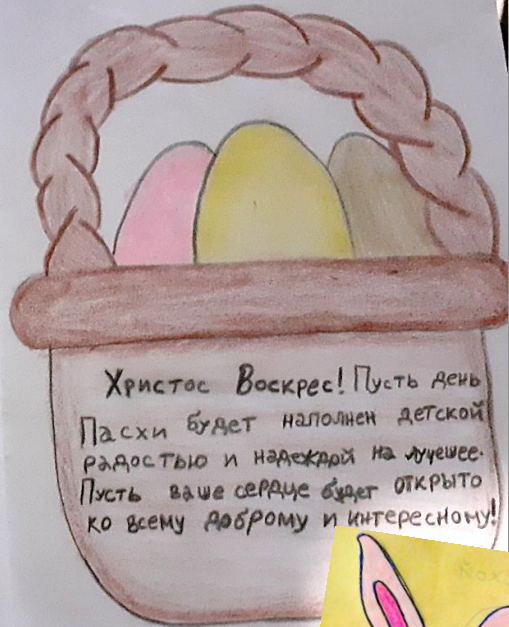 Христос Воскрес! Пусть день
Пасхи будет наполнен детской
радостью и надеждой на лучшее.
Пусть ваше сердце будет открыто
ко всему доброму и интересному!